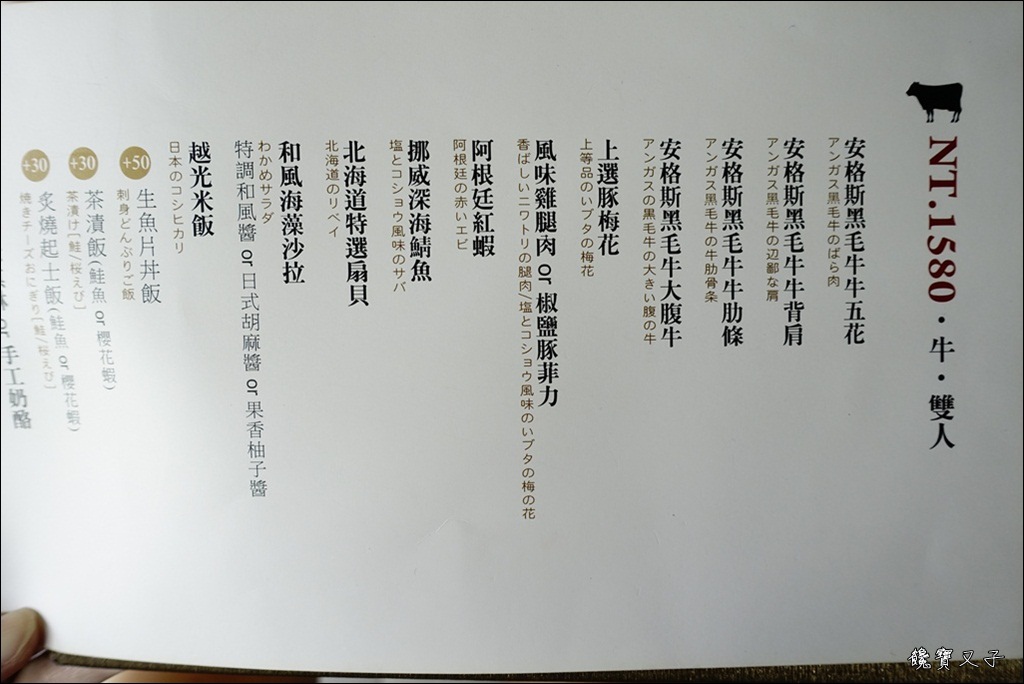 NT.1580・牛・雙人
安格斯黑毛牛牛五花
アンガス黒毛牛のばら肉
安格斯黑毛牛牛背肩
アンガス黒毛牛の辺鄙な肩
安格斯黑毛牛牛肋條
アンガス黒毛牛の牛肋骨条
安格斯黑毛牛大腹牛
アンガスの黒毛牛の大きい腹の牛
上選豚梅花
上等品のいブタの梅花
風味雞腿肉 or 椒鹽豚菲力
香ばしいニワトリの腿肉/塩とコショウ風味のいブタの梅の花
阿根廷紅蝦
阿根廷の赤いエビ
挪威深海鯖魚
塩とコショウ風味のサバ
北海道特選扇貝
北海道のリベイ
和風海藻沙拉
わかめサラダ
特調和風醬 or 日式胡麻醬 or 果香柚子醬
越光米飯
日本のコシヒカリ
+50 生魚片丼飯
刺身どんぶりご飯
+30 茶漬飯(鮭魚 or 櫻花蝦)
茶漬け[鮭/桜えび]
+30 炙燒起士飯(鮭魚 or 櫻花蝦)
焼きチーズおにぎり[鮭/桜えび]
or 手工奶酪
饞寶又子